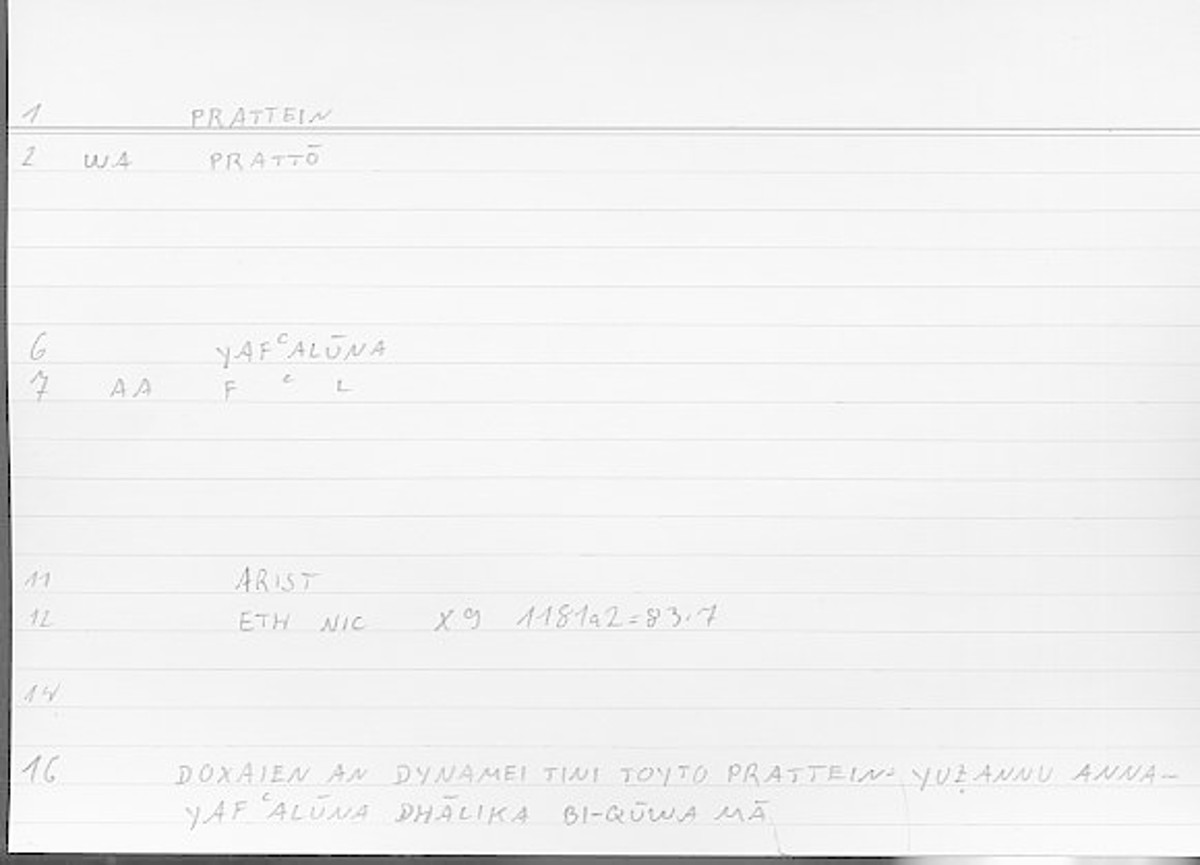 1 PRATTEIN
2 WA PRATTŌ
6 YAFᶜALŪNA
7 AA F ᶜ L
11 ARIST
12 ETH NIC X9 1181a2=83.7
14
16 DOXAIEN AN DYNAMEI TINI TOYTO PRATTEIN= YUẒANNU ANNA-
YAFᶜALŪNA DHĀLIKA BI-QŪWA MĀ